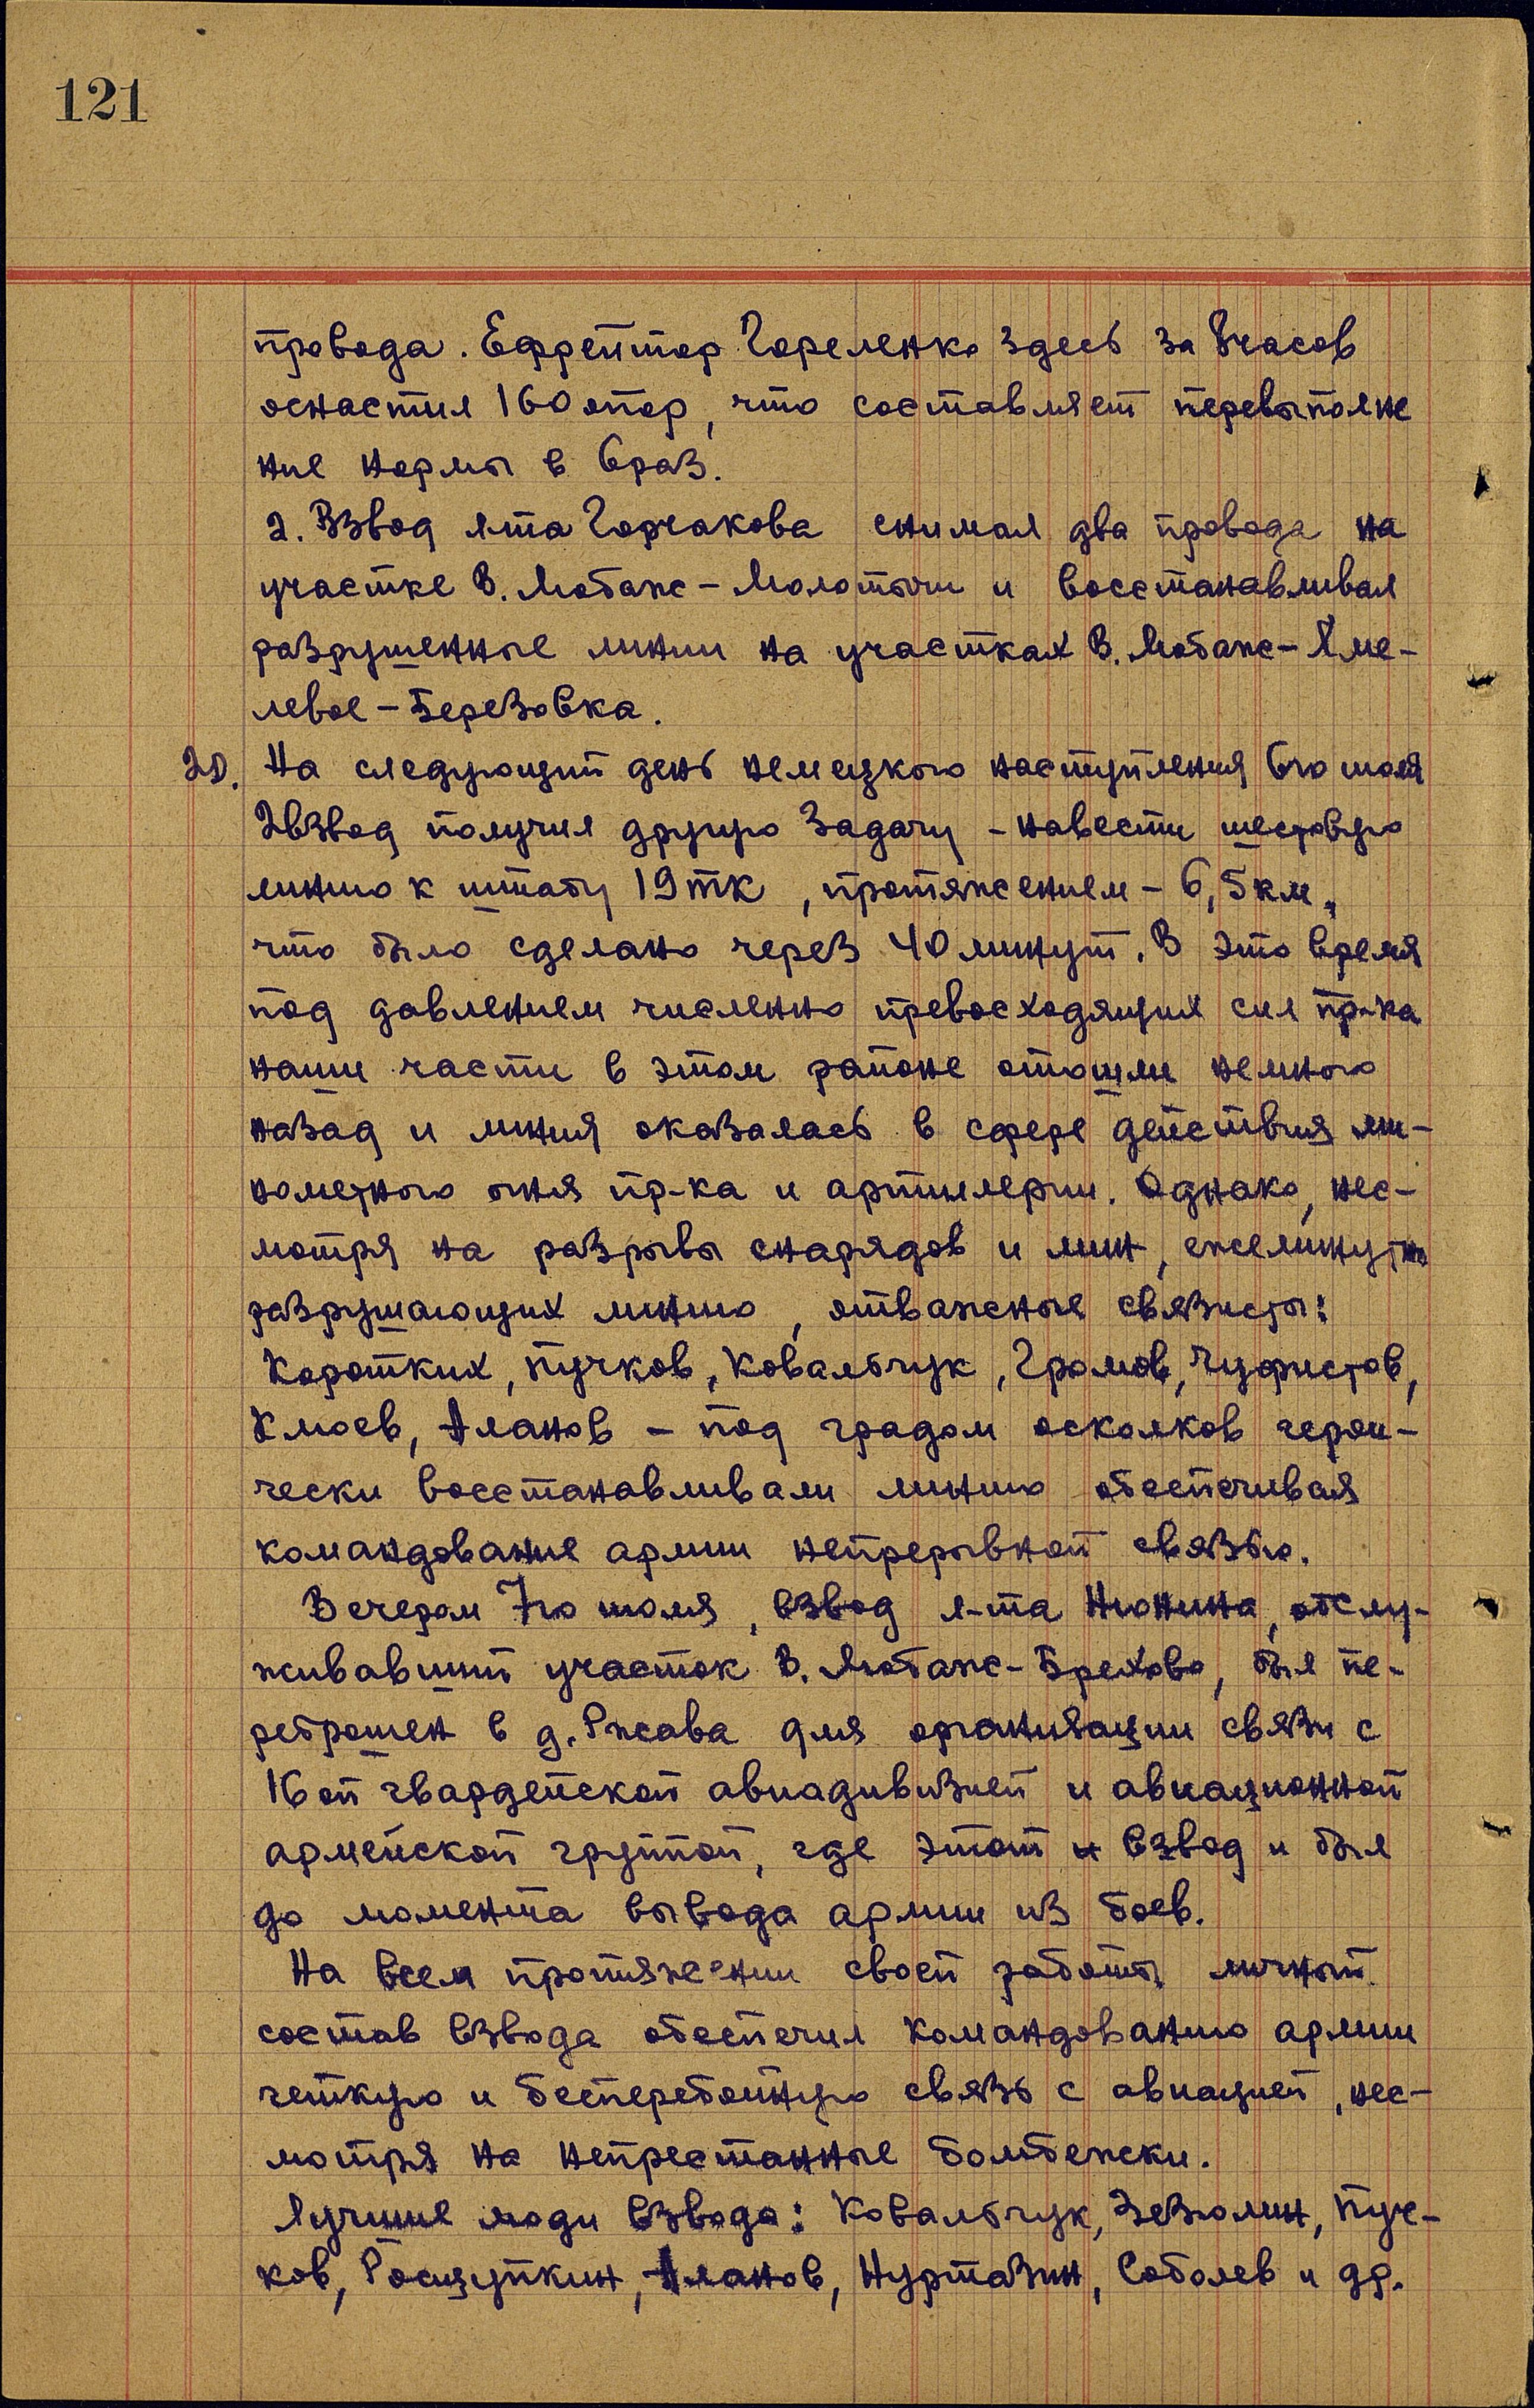 121
провода. Ефрейтор Гореленко здесь за 8 часов
оснастил 160 опор, что составляет перевыполне
ние нормы в 6 раз.
2. Взвод л-та Горчакова снимал два провода на
участке В. Любаж - Молотычи и восстанавливал
разрушенные линии на участках В. Любаж - Хме-
левое - Березовка.
20. На следующий день немецкого наступления 6го июля
2 взвод получил другую задачу - навести шестовую
линию к штабу 19 ТК, протяжением - 6,5 км,
что было сделано через 40 минут. В это время
под давлением численно превосходящих сил пр-ка
наши части в этом районе отошли немного
назад и линия оказалась в сфере действия ми-
нометного огня пр-ка и артиллерии. Однако, нес-
мотря на разрывы снарядов и мин, ежеминутно
разрушающих линию, отважные связисты:
Коротких, Пучков, Ковальчук, Громов, Чуфистов,
Клюев, Аланов - под градом осколков герои-
чески восстанавливали линию обеспечивая
командование армии непрерывной связью.
Вечером 7го июля, взвод л-та Нюнина, обслу-
живавший участок В. Любаж - Брехово, был пе-
реброшен в д. Ржава для организации связи с
16ой гвардейской авиадивизией и авиационной
армейской группой, где этот и взвод и был
до момента вывода армии из боев.
На всем протяжении своей работы личный
состав взвода обеспечил командованию армии
четкую и бесперебойную связь с авиацией, нес-
мотря на непрестанные бомбежки.
Лучшие люди взвода: Ковальчук, Зевюлин, Пуч-
ков, Рощупкин, Аланов, Нуртазин, Соболев и др.